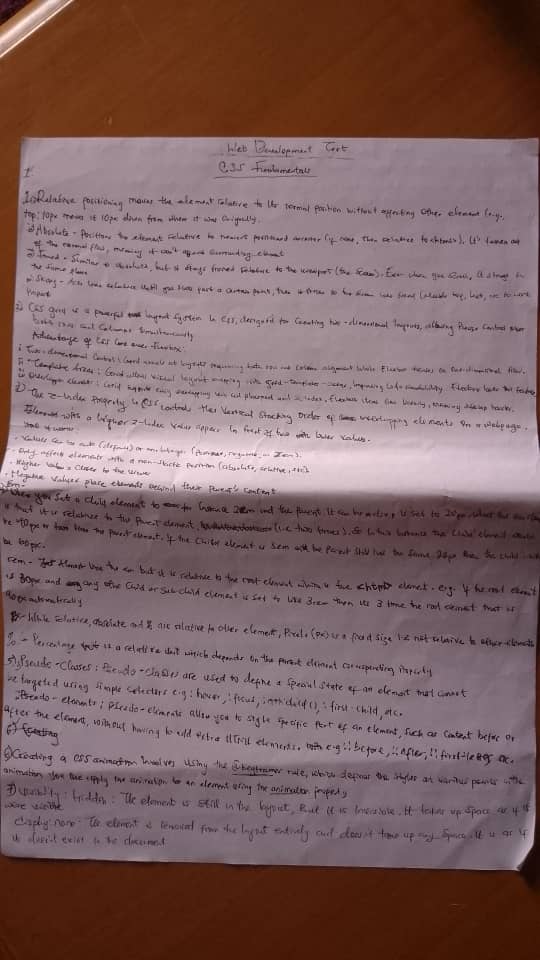 Web Development Test
CSS Fundamentals
1) Relative positioning moves the element relative to its normal position without affecting other element (e.g.
top: 10px moves it 10px down from where it was originally.
Absolute - Positions the element relative to nearest positioned ancestor (if none, then relative to <html>). It's taken out
of the normal flow, meaning it won't affect surrounding element
Fixed - Similar to absolute, but it stays fixed relative to the viewport (the screen). Even when you scroll, it stays in
the same place
Sticky - Acts like relative until you scroll past a certain point, then it sticks to the
2) CSS grid is a powerful layout system in CSS, designed for creating two-dimensional layouts, allowing precise control over
both rows and columns simultaneously
Advantage of CSS Grid over Flexbox:
i Two-dimensional Control: Grid excels at layouts requiring both row and column alignment while Flexbox focuses on one-dimensional flow.
ii Template Areas: Grid allows visual layout mapping with grid-template-areas, improving code readability. Flexbox lacks this feature
iii Overlapping elements: Grid
3) The Z-index Property in CSS controls the vertical stacking order of overlapping elements on a webpage.
Elements with a higher z-index value appear in front of those with lower values.
- Values can be auto (default) or an integer (positive, negative, or zero).
- Only affects elements with a non-static position (absolute, relative, etc)
- Higher value = closer to the viewer
- Negative values place elements behind their parent's content
4) Em:
When you set a child element to for instance 2em and the parent
is that it is relative to the parent element, (i.e two times), so in this instance the child element would
be 40px or two times the parent element. if the child element is 3em and the parent still has the same 20px then the child will
be 60px.
rem - Almost like the em but it is relative to the root element which is the <html> element. e.g. if the root element
is 30px and any of the child or sub-child element is set to like 3rem then its 3 time the root element that is
90px automatically
While relative, absolute and % are relative to other element, Pixels (px) is a fixed size i.e not relative to other elements
% - Percentage is a relative unit which depends on the parent element corresponding property
5) Pseudo-Classes: Pseudo-classes are used to define a special state of an element that cannot
be targeted using simple selectors e.g: hover, :focus, :nth-child(), :first-child, etc.
Pseudo-elements: Pseudo-elements allow you to style specific part of an element, such as content before or
after the element, without having to add extra HTML elements. e.g ::before, ::after, ::first-line etc.
6) Creating a CSS animation involves using the @keyframes rule, which defines the styles at various points in the
animation. You then apply the animation to an element using the animation property
7) Visibility: hidden: The element is still in the layout, But it is Invisible. It takes up space as if it
were visible
display: none - The element is removed from the layout entirely and doesn't take up any space. It is as if
it doesn't exist in the document